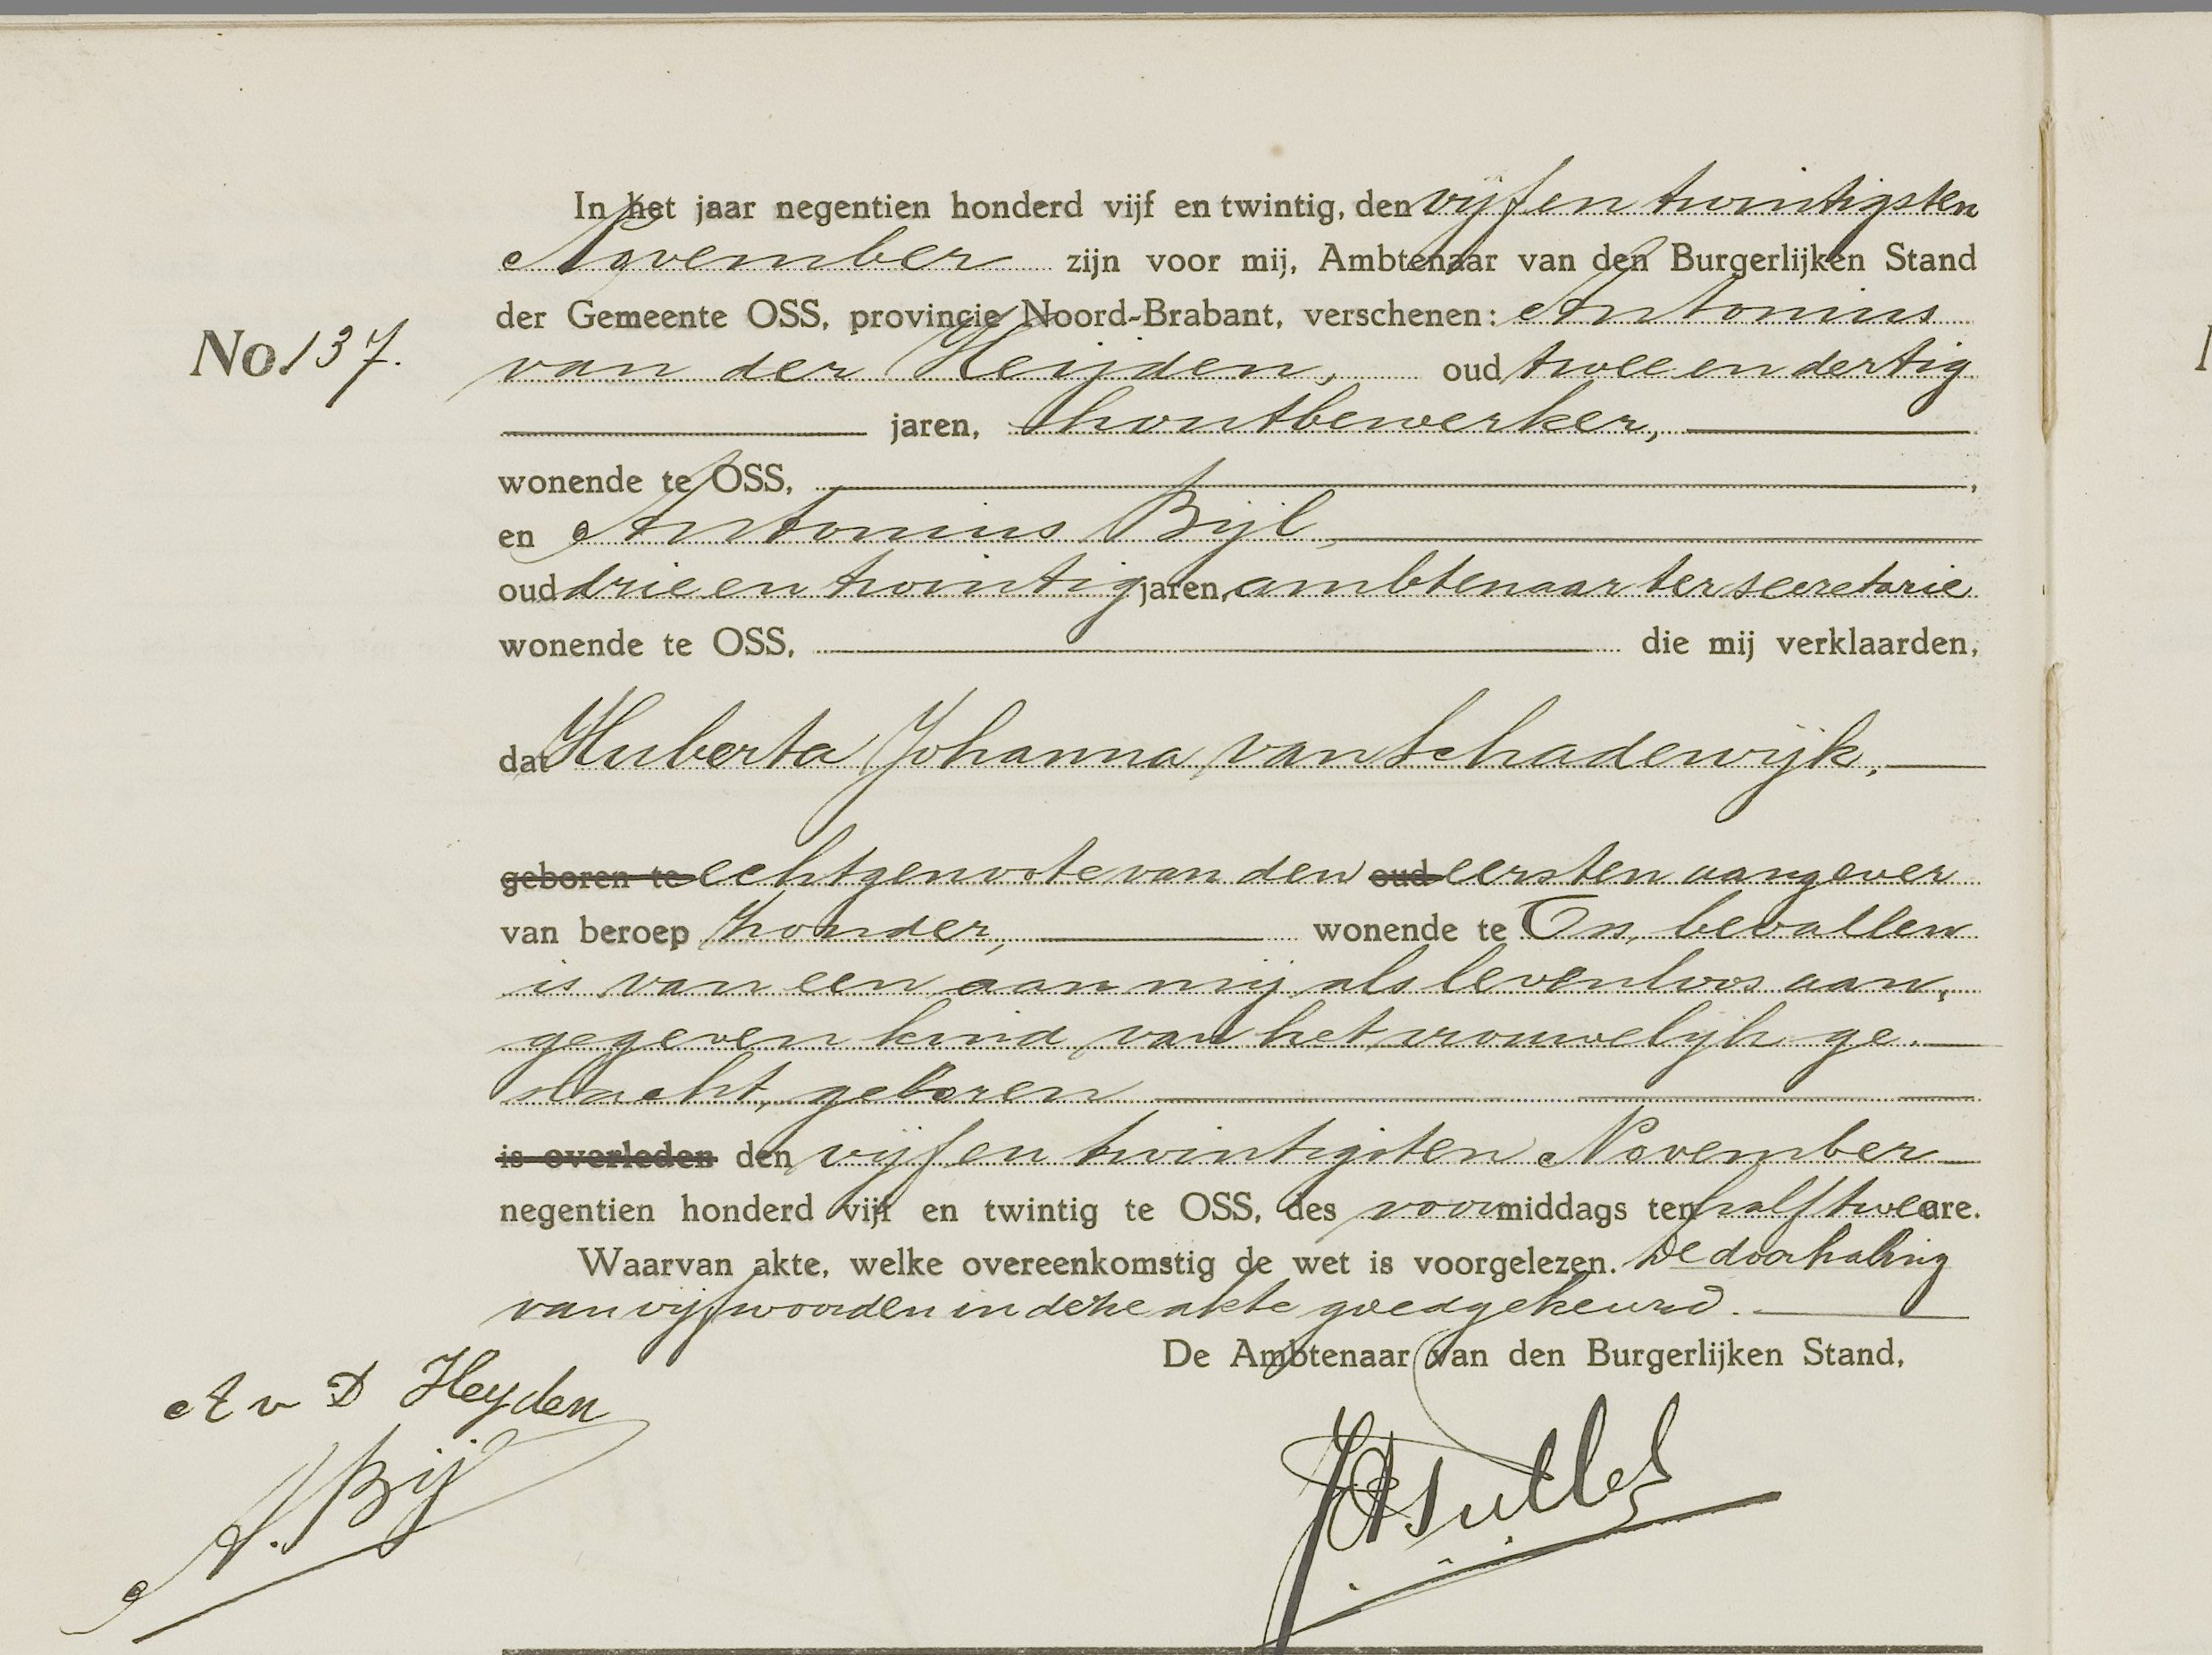 In het jaar negentien honderd vijf en twintig, den vijf en twintigsten
November zijn voor mij, Ambtenaar van den Burgerlijken Stand
der Gemeente OSS, provincie Noord-Brabant, verschenen: Antonius
No. 137.
van der Heijden, oud twee en dertig
jaren, houtbewerker,
wonende te OSS,
en Antonius Bijl,
oud drie en twintig jaren, ambtenaar ter secretarie
wonende te OSS, die mij verklaarden,
dat Huberta Johanna van Schadewijk,
geboren te echtgenoote van den oud eersten aangever
van beroep zonder, wonende te Oss, bevallen
is van een aan mij als levenloos aan,
gegeven kind van het vrouwelijk ge.
slacht, geboren
is overleden den vijf en twintigsten November
negentien honderd vijf en twintig te OSS, des voormiddags ten half twee ure.
Waarvan akte, welke overeenkomstig de wet is voorgelezen. De doorhaling
van vijf woorden in deze akte goedgekeurd.
De Ambtenaar van den Burgerlijken Stand,
A v D Heyden
A. Bijl